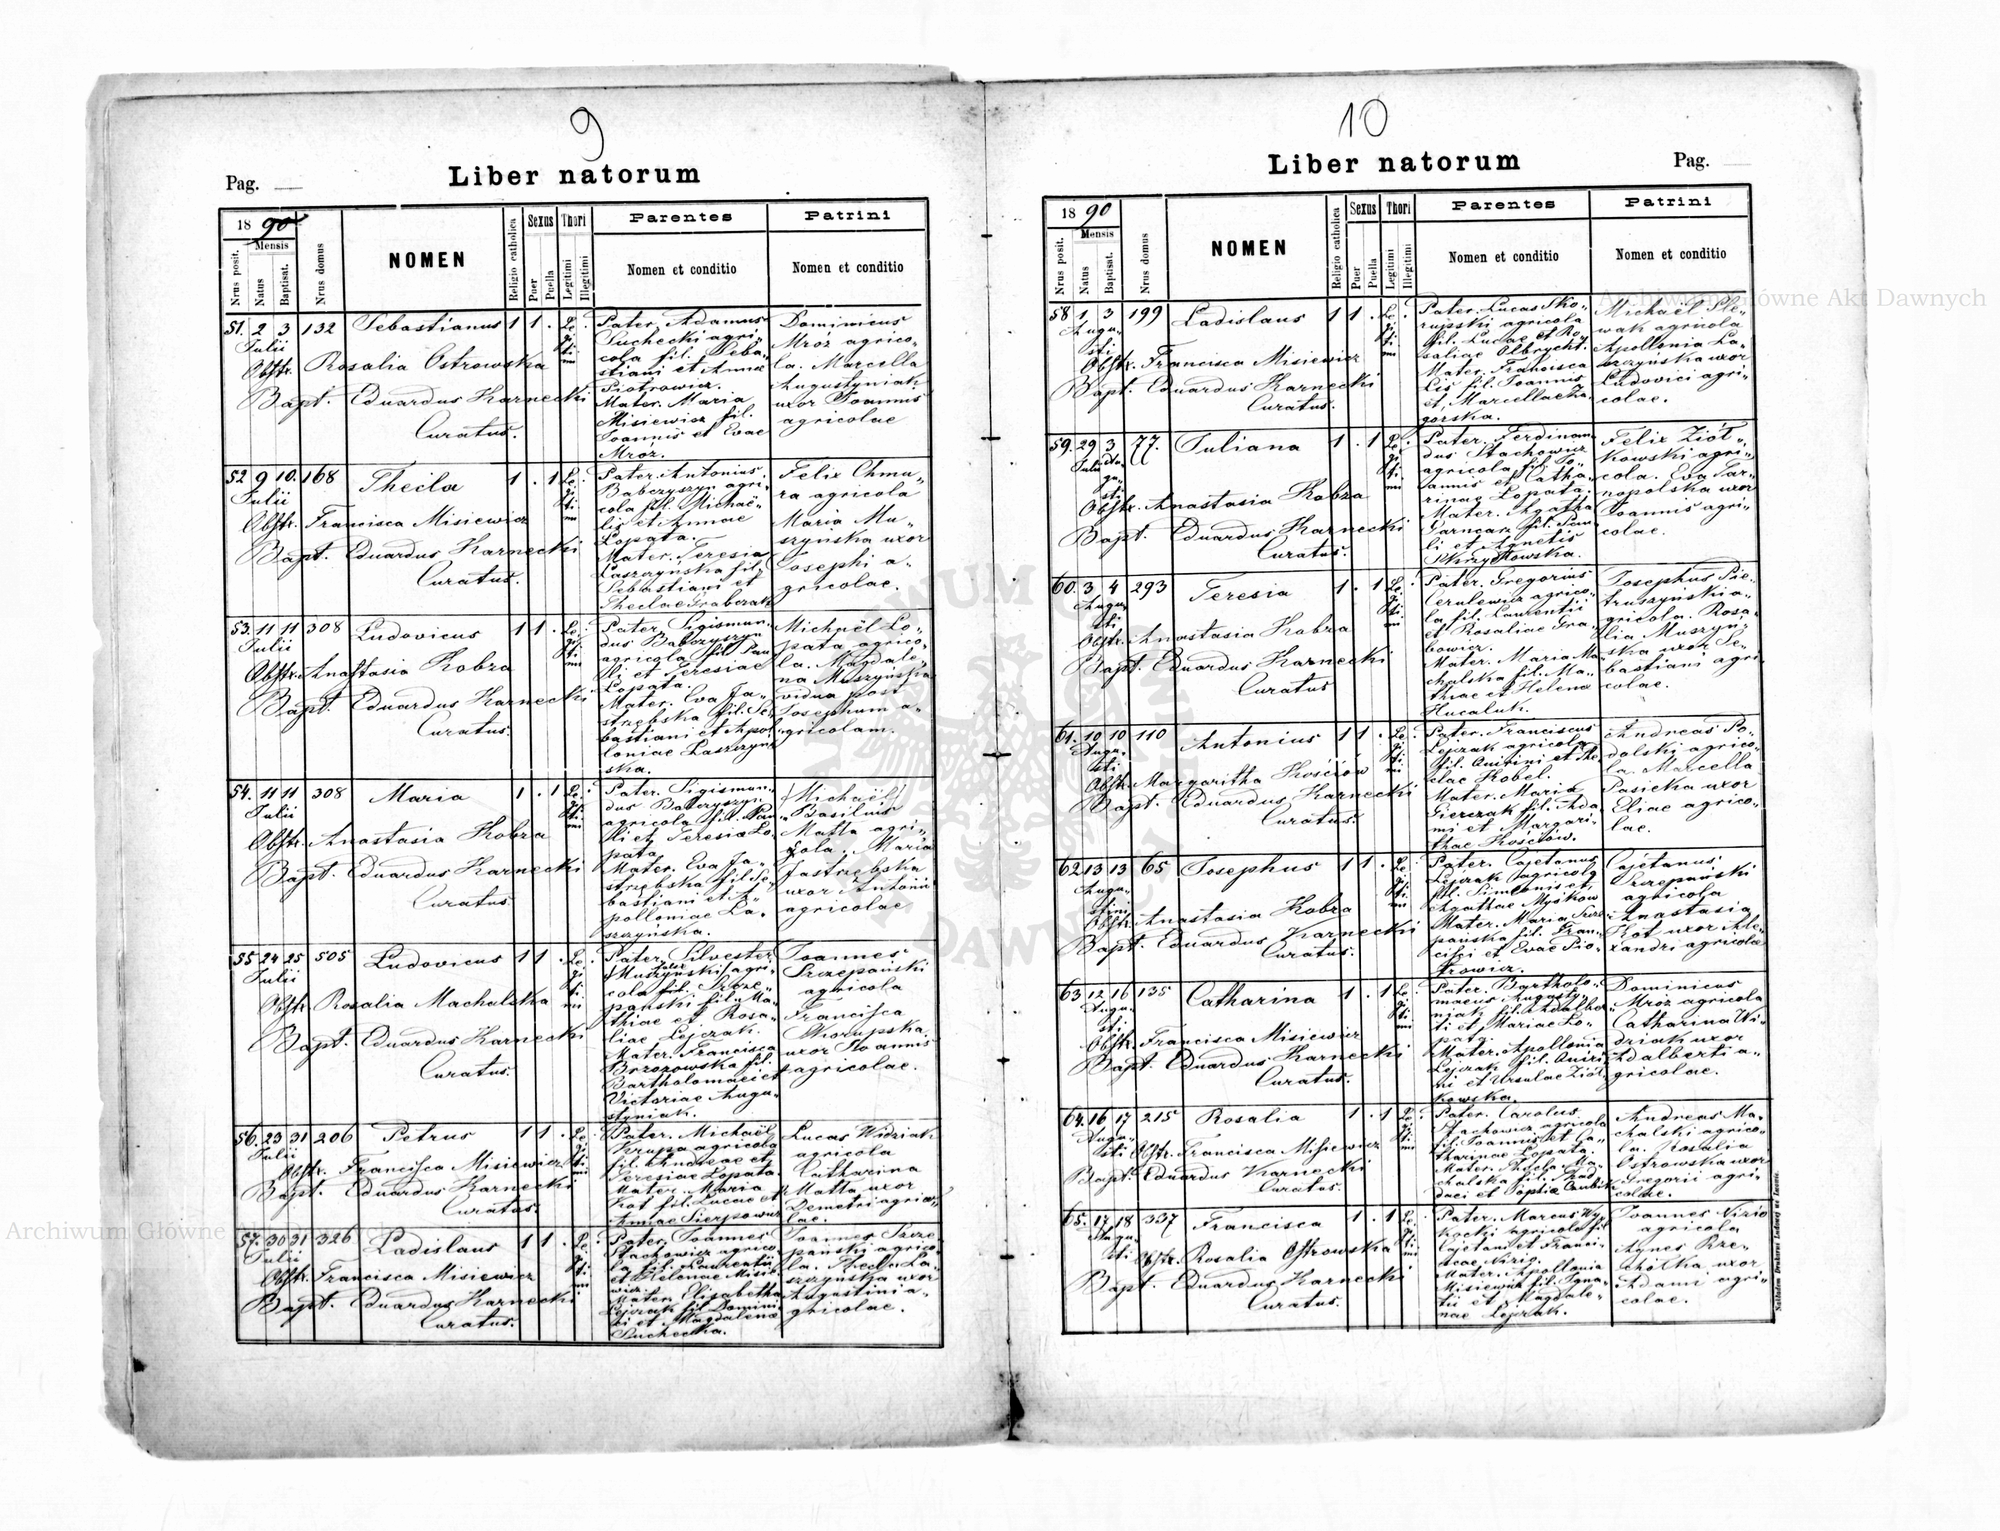 9
Liber natorum
Pag.
18 90
Mensis
Nrus posit.
Natus
Baptisat.
Nrus domus
NOMEN
Religio catholica
Sexus
Puer
Puella
Thori
Legitimi
Illegitimi
Parentes
Nomen et conditio
Patrini
Nomen et conditio
51. 2 3 132 Sebastianus 1 1 . Legitimi
Julii
Obstr. Rosalia Ostrowska
Bapt. Eduardus Karnecki
Curatus.
Pater, Adamus
Suchecki agri-
cola fil. Seba-
stiani et Annae
Piotrowicz.
Mater. Maria
Misiewicz fil.
Joannis et Evae
Mroz.
Dominicus
Mroz agrico-
la. Marcella
Augustyniak
uxor Joannis
agricolae
52 9 10. 168 Thecla 1 . 1 Legitimi
Julii
Obstr. Francisca Misiewicz
Bapt. Eduardus Karnecki
Curatus.
Pater. Antonius
Babczyszyn agri-
cola fil. Michaë-
lis et Annae
Lopata.
Mater. Teresia
Laszczyńska fil.
Sebastiani et
Theclae Grabczak
Felix Chmu-
ra agricola
Maria Mu-
szyńska uxor
Josephi a-
gricolae.
53. 11 11 308 Ludovicus 1 1 . Legitimi
Julii
Obstr. Anastasia Kobza
Bapt. Eduardus Karnecki
Curatus.
Pater. Sigismun-
dus Babczyszyn
agricola fil. Pau
li et Teresiae
Lopata.
Mater. Eva Ja-
strębska fil. Se-
bastiani et Apol
loniae Laszczyń
ska.
Michaël Lo-
pata agrico-
la. Magdale-
na Muszyńska
vidua post
Josephum a-
gricolam.
54. 11 11 308 Maria 1 . 1 Legitimi
Julii
Obstr. Anastasia Kobza
Bapt. Eduardus Karnecki
Curatus.
Pater. Sigismun-
dus Babczyszyn
agricola fil. Pau
li et Teresiae Lo-
pata
Mater. Eva Ja-
strębska fil. Se-
bastiani et A-
polloniae La-
szczyńska.
(Michaël)
Basilius
Matta agri-
cola. Maria
Jastrzębska
uxor Antonii
agricolae
55 24 25 505 Ludovicus 1 1 . Legitimi
Julii
Obstr. Rosalia Machalska
Bapt. Eduardus Karnecki
Curatus.
Pater, Silvester
(Muszyński) agri-
cola fil. Szcze-
pański fil. Ma-
thiae et Rosa-
liae Lejczak.
Mater. Francisca
Brzozowska fil.
Bartholomaei et
Victoriae Augu-
styniak.
Joannes
Szczepański
agricola
Francisca
uxor Joannis
agricolae.
56. 23 31 206 Petrus 1 1 . Legitimi
Julii
Obstr. Francisca Misiewicz
Bapt. Eduardus Karnecki
Curatus.
Pater. Michaël
Kruppa agricola
fil. Andreae et
Teresiae Lopata.
Mater. Maria
Kot fil. Lucae et
Annae Sierpowicz
Lucas Widziak
agricola
Catharina
Matta uxor
Demetri agrico-
lae.
57. 30 31 326 Ladislaus 1 1 . Legitimi
Julii
Obstr. Francisca Misiewicz
Bapt. Eduardus Karnecki
Curatus.
Pater. Joannes
Stachowicz agrico
la fil. Laurentii
et Helenae Misie
wicz
Mater. Elisabetha
Lejczak fil. Domini
ci et Magdalenae
Suchecka.
Joannes Szcze
pański agrico-
la. Thecla La-
szczyńska uxor
Augustini a-
gricolae.
10
Liber natorum
Pag.
18 90
Mensis
Nrus posit.
Natus
Baptisat.
Nrus domus
NOMEN
Religio catholica
Sexus
Puer
Puella
Thori
Legitimi
Illegitimi
Parentes
Nomen et conditio
Patrini
Nomen et conditio
58 1 3 199 Ladislaus 1 1 . Legitimi
Augusti
Obstr. Francisca Misiewicz
Bapt. Eduardus Karnecki
Curatus.
Pater. Lucas Sko-
rupski agricola
fil. Lucae et Ro-
saliae Olbrycht.
Mater. Francisca
Lis fil. Joannis
et Marcellae Za-
górska.
Michaël Sle-
wak agricola
Apollonia La-
szczyńska uxor
Ludovici agri-
colae.
59. 29 3 77. Juliana 1 . 1 Legitimi
Julii Augusti
Obstr. Anastasia Kobza
Bapt. Eduardus Karnecki
Curatus.
Pater. Ferdinan-
dus Stachowicz
agricola fil. Jo-
annis et Catha-
rinae Lopata.
Mater. Agatha
Garncarz fil. Pau
li et Agnetis
Skrzydłowska.
Felix Ziół-
kowski agri-
cola. Eva Tar-
nopolska uxor
Joannis agri-
colae.
60. 3 4 293 Teresia 1 . 1 Legitimi
Augusti
Obstr. Anastasia Kobza
Bapt. Eduardus Karnecki
Curatus
Pater. Gregorius
Cerulewicz agrico-
la fil. Laurentii
et Rosaliae Gra-
bowicz.
Mater. Maria Ma
chalska fil. Ma-
thiae et Helena
Hucaluk.
Josephus Pie-
truszyński a-
gricola. Rosa-
lia Muszyń-
ska uxor Se-
bastiani agri
colae.
61. 10 10 110 Antonius 1 1 . Legitimi
Augusti
Obstr. Margaritha Kościów
Bapt. Eduardus Karnecki
Curatus.
Pater. Franciscus
Lejczak agricola
fil. Quirini et The
clae Kobel.
Mater. Maria
Gierczak fil. Ada
mi et Margari-
thae Kościów.
Andreas Po-
dolski agrico-
la. Marcella
Pasieka uxor
Eliae agrico-
lae.
62 13 13 65 Josephus 1 1 . Legitimi
Augustini
Obstr. Anastasia Kobza
Bapt. Eduardus Karnecki
Curatus.
Pater. Cajetanus
Lejczak agricola
fil. Simeonis et
Agathae Myśkow
Mater. Maria Szcze
pańska fil. Fran-
cisci et Evae Pio-
trowicz.
Cajetanus
Szczepański
agricola
Anastasia
Kot uxor Ale-
xandri agricolae
63 12 16 135 Catharina 1 . 1 Legitimi
Augusti
Obstr. Francisca Misiewicz
Bapt. Eduardus Karnecki
Curatus.
Pater. Bartholo-
maeus Augusty-
niak fil. Adalber-
ti et Mariae Lo-
pata.
Mater. Apollonia
Lejczak fil. Quiri
ni et Ursulae Ziół
kowska.
Dominicus
Mróz agricola
Catharina Wi-
dziak uxor
Adalberti a-
gricolae.
64. 16 17 215 Rosalia 1 . 1 Legitimi
Augusti
Obstr. Francisca Misiewicz
Bapt. Eduardus Karnecki
Curatus.
Pater. Carolus
Stachowicz agricola
fil. Joannis et Ca-
tharinae Lopata.
Mater. Thecla Ma-
chalska fil. Thad
daei et
Andreas Ma-
chalski agrico-
la. Rosalia
Ostrowska uxor
Gregorii agri-
colae.
65. 17 18 337 Francisca 1 . 1 Legitimi
Augusti
Obstr. Rosalia Ostrowska
Bapt. Eduardus Karnecki
Curatus.
Pater. Marcus Wy-
socki agricola fil
Cajetani et Franci-
scae Nizio.
Mater. Apollonia
Misiewicz fil. Igna-
tii et Magdale-
nae Lejczak.
Joannes Nizio
agricola
Agnes Rze-
uxor
Adami agri-
colae.
Nakładem Drukarni Ludowej we Lwowie.
Archiwum Główne Akt Dawnych
Archiwum Główne Akt Dawnych